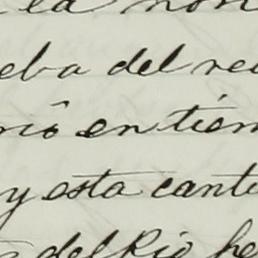 la non
eba del re
rió en tiem
y esta canti
del Rio he